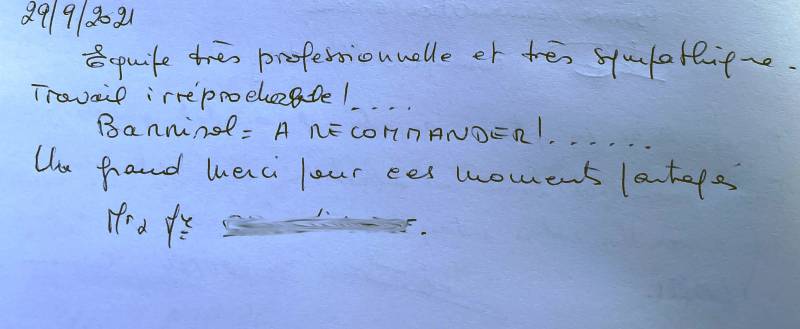 29/9/2021
Equipe très professionnelle et très sympathique.
Travail irréprochable!....
Barrisol = A RECOMMANDER!......
Un grand merci pour ces moments partagés
Mr &